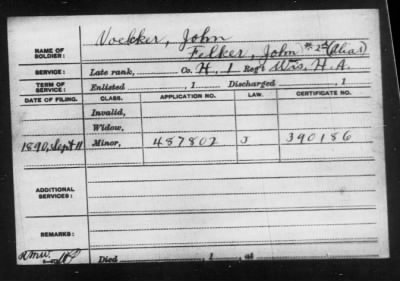 NAME OF SOLDIER: Voekker, John
Felker, John #2d (Alias)
SERVICE: Late rank, Co. H, 1 Reg't Wis. H.A.
TERM OF SERVICE: Enlisted , 1 Discharged , 1
DATE OF FILING. CLASS. APPLICATION NO. LAW. CERTIFICATE NO.
Invalid,
Widow,
1890, Sept 11 Minor, 487802 J 390186
ADDITIONAL SERVICES:
REMARKS:
Died , 1 , at